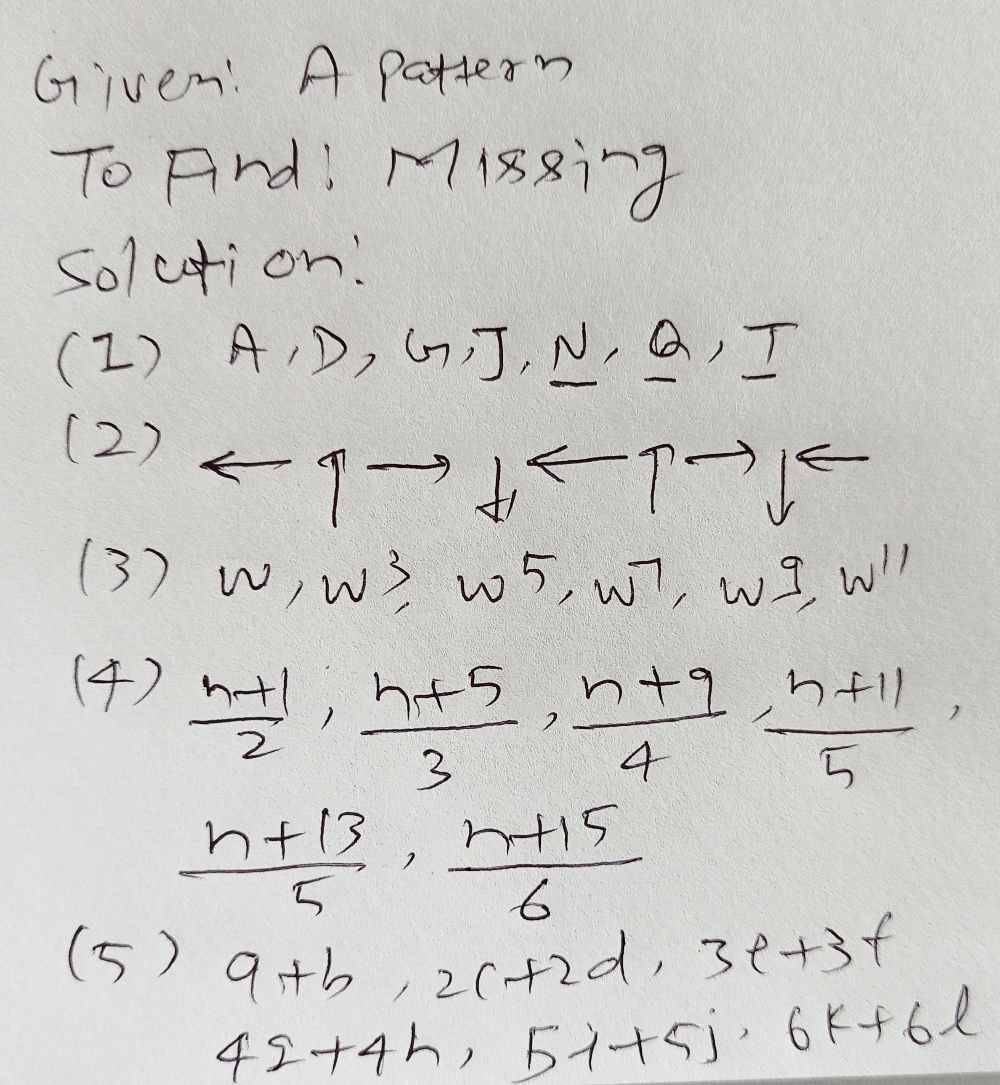 Given: A Pattern
To Find: Missing
Solution:
(1) A, D, G, J, N, Q, T
(2) ← ↑ → ↓ ← ↑ → ↓ ←
(3) w, w3, w5, w7, w9, w11
(4) n+1/2, n+5/3, n+9/4, n+11/5,
n+13/5, n+15/6
(5) a+b, 2c+2d, 3e+3f
4g+4h, 5i+5j, 6k+6l